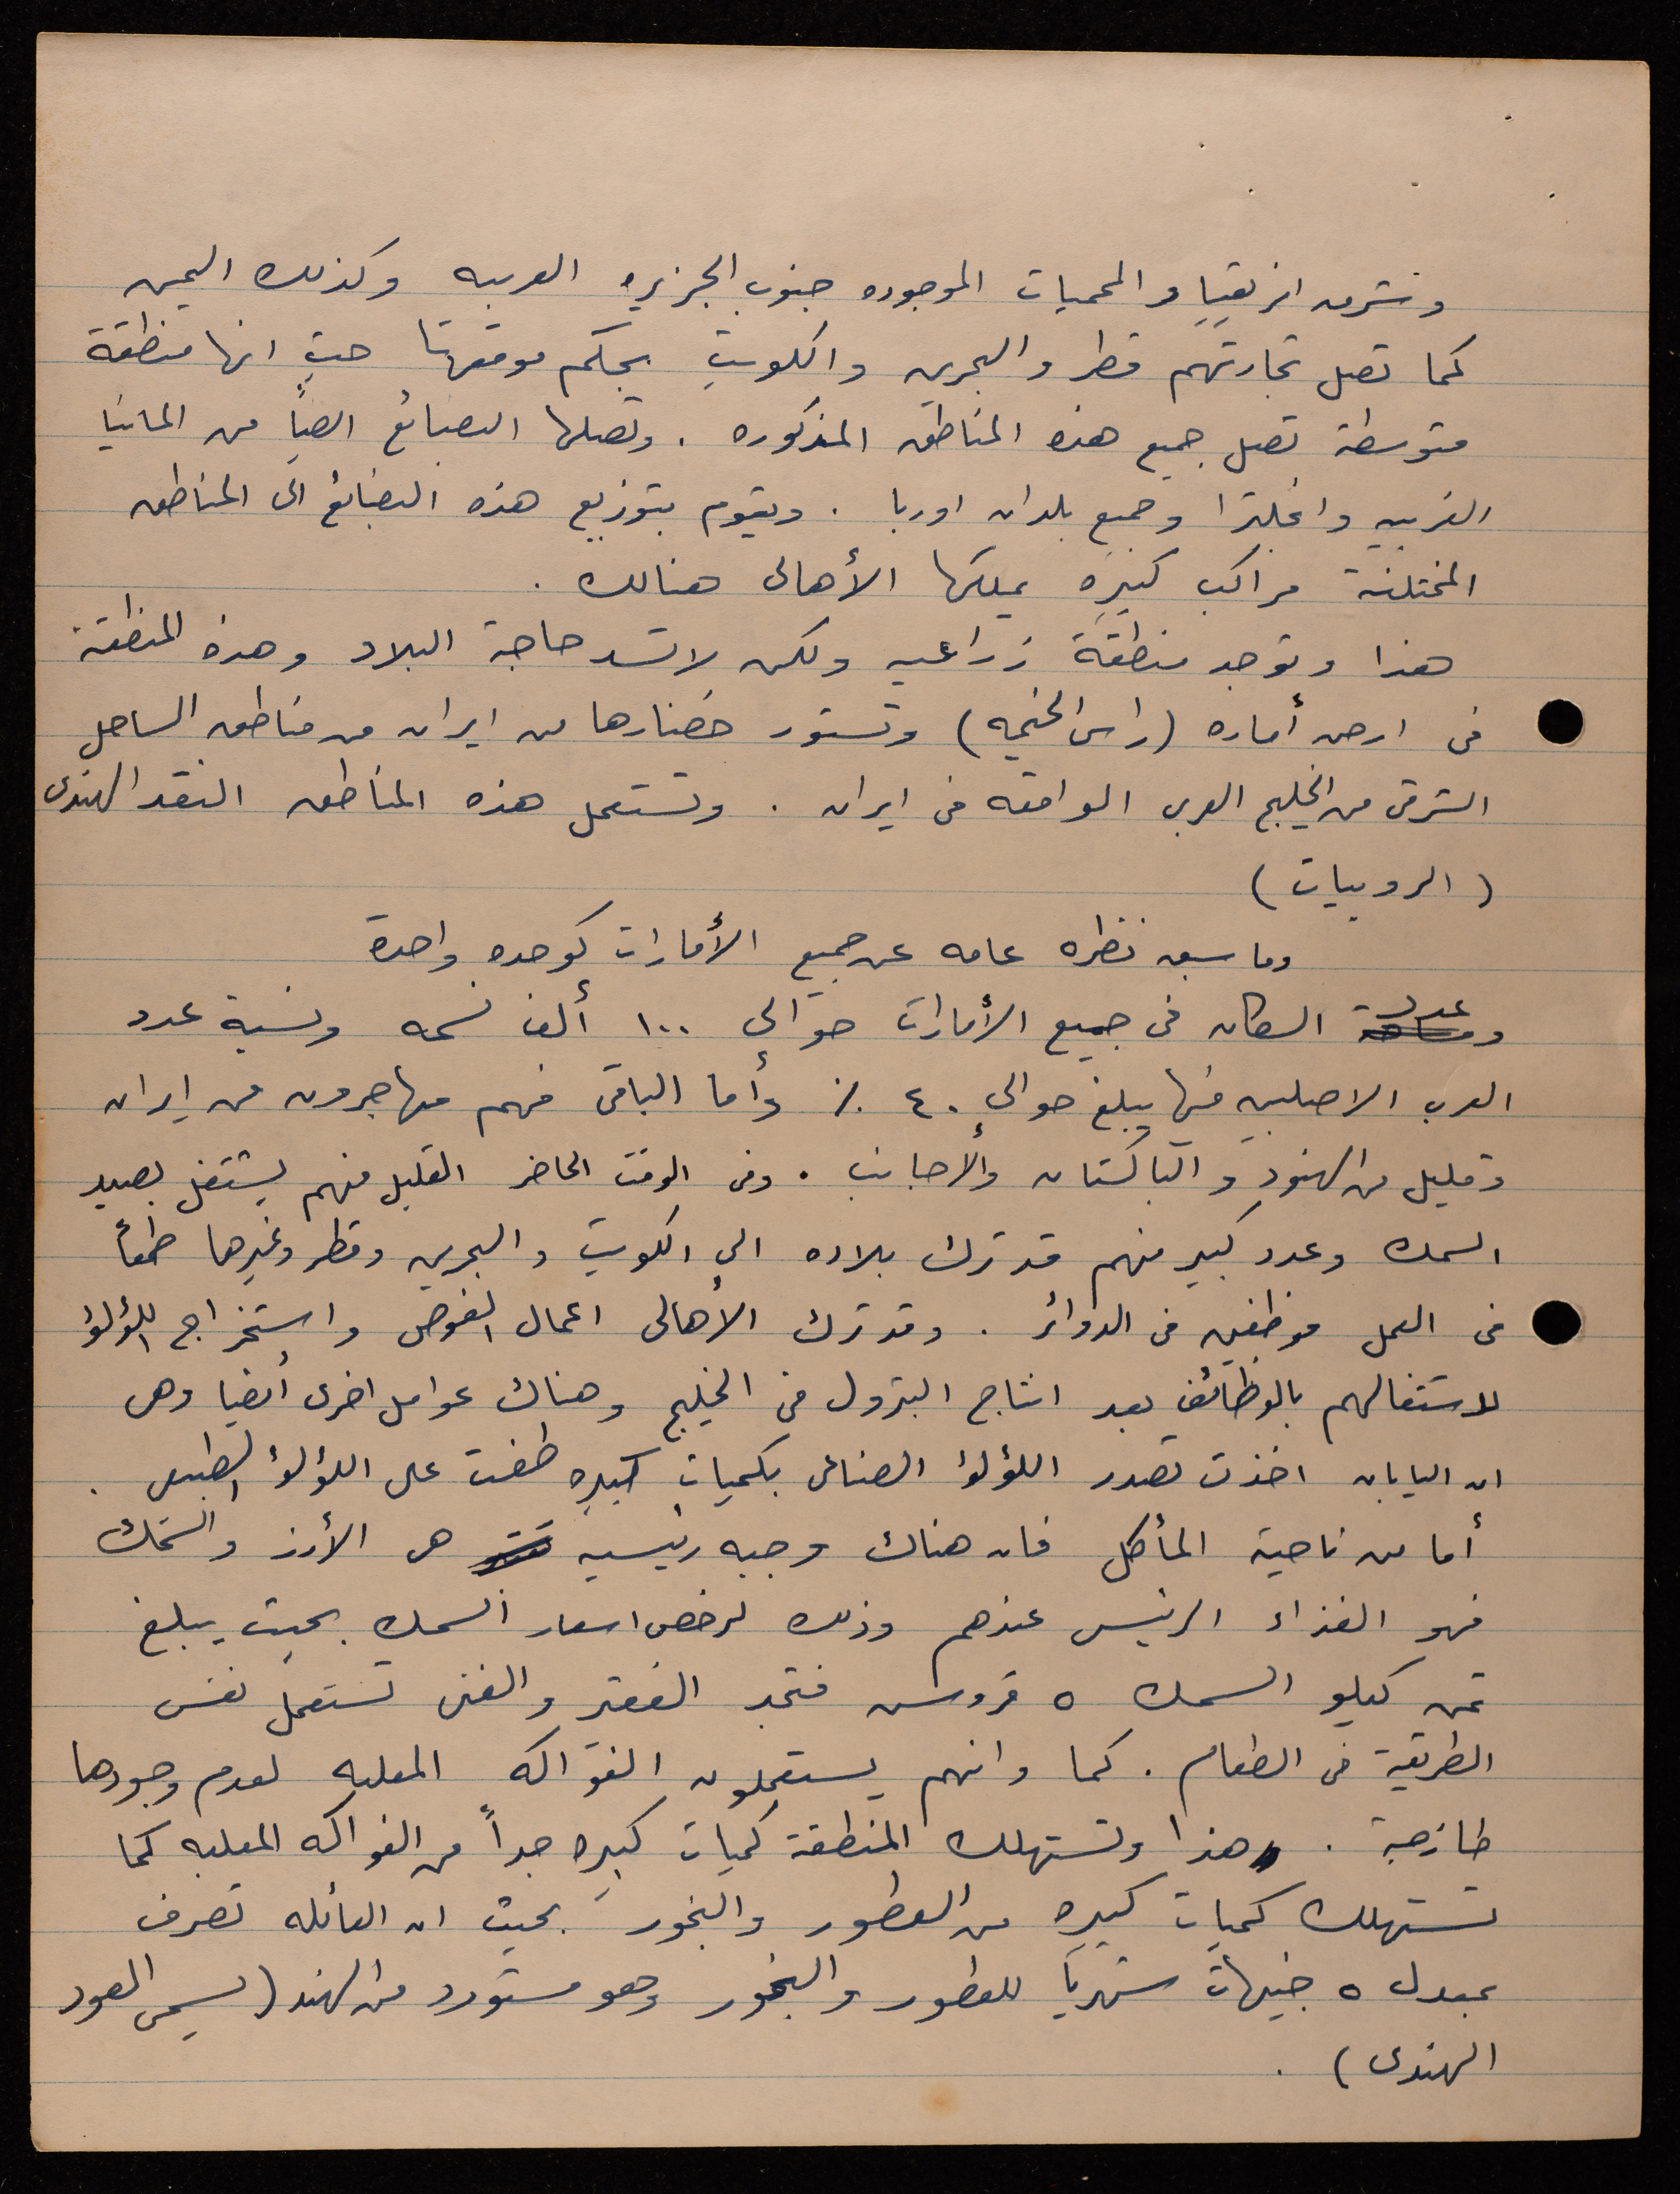 وشرق افريقيا والمحميات الموجوده جنوب الجزيره العربيه وكذلك اليمن
كما تصل تجارتهم قطر والبحرين والكويت بحكم موقعها حيث انها منطقة
متوسطة تصل جميع هذه المناطق المذكوره . وتصلها البضائع ايضاً من المانيا
الغربيه وانجلترا وجميع بلدان اوربا . ويقوم بتوزيع هذه البضائع الى المناطق
المختلفة مراكب كبيره يملكها الأهالى هنالك .
هذا وتوجد منطقة زراعيه ولكن لا تسد حاجة البلاد وهذه المنطقة
فى ارض أماره (راس الخيمه) وتستورد خضارها من ايران من مناطق الساحل
الشرقى من الخليج العربى الواقعه فى ايران . وتستعمل هذه المناطق النقد الهندى
(الروبيات)
وما سبق نظره عامه عن جميع الأمارات كوحده واحدة
وعدد السكان فى جميع الأمارات حوالى ١٠٠ ألف نسمه ونسبة عدد
العرب الاصليين فيها يبلغ حوالى ٤٠ ٪ وأما الباقى فهم مهاجرون من إيران
وقليل من الهنود والباكستان والأجانب . وفى الوقت الحاضر القليل منهم يشتغل بصيد
السمك وعدد كبير منهم قد ترك بلاده الى الكويت والبحرين وقطر وغيرها طمعاً
فى العمل موظفين فى الدوائر . وقد ترك الأهالى اعمال الغوص واستخراج اللؤلؤ
لاشتغالهم بالوظائف بعد انتاج البترول فى الخليج وهناك عوامل اخرى أيضا وهى
ان اليابان اخذت تصدر اللؤلؤ الصناعى بكميات كبيره طغت على اللؤلؤ الطبيعى .
أما من ناحية المأكل فان هناك وجبه رئيسيه هى الأرز والسمك
فهو الغذاء الرئيسى عندهم وذلك لرخص اسعار السمك بحيث يبلغ
ثمن كيلو السمك ٥ قروش فتجد الفقير والغنى تستعمل نفس
الطريقة فى الطعام . كما وانهم يستعملون الفواكه المعلبه لعدم وجودها
طازجة . هذا وتستهلك المنطقة كميات كبيره جداً من الفواكه المعلبه كما
تستهلك كميات كبيره من العطور والبخور بحيث ان العائله تصرف
بمعدل ٥ جنيهات شهريا للعطور والبخور وهو مستورد من الهند (يسمى العود
الهندى) .